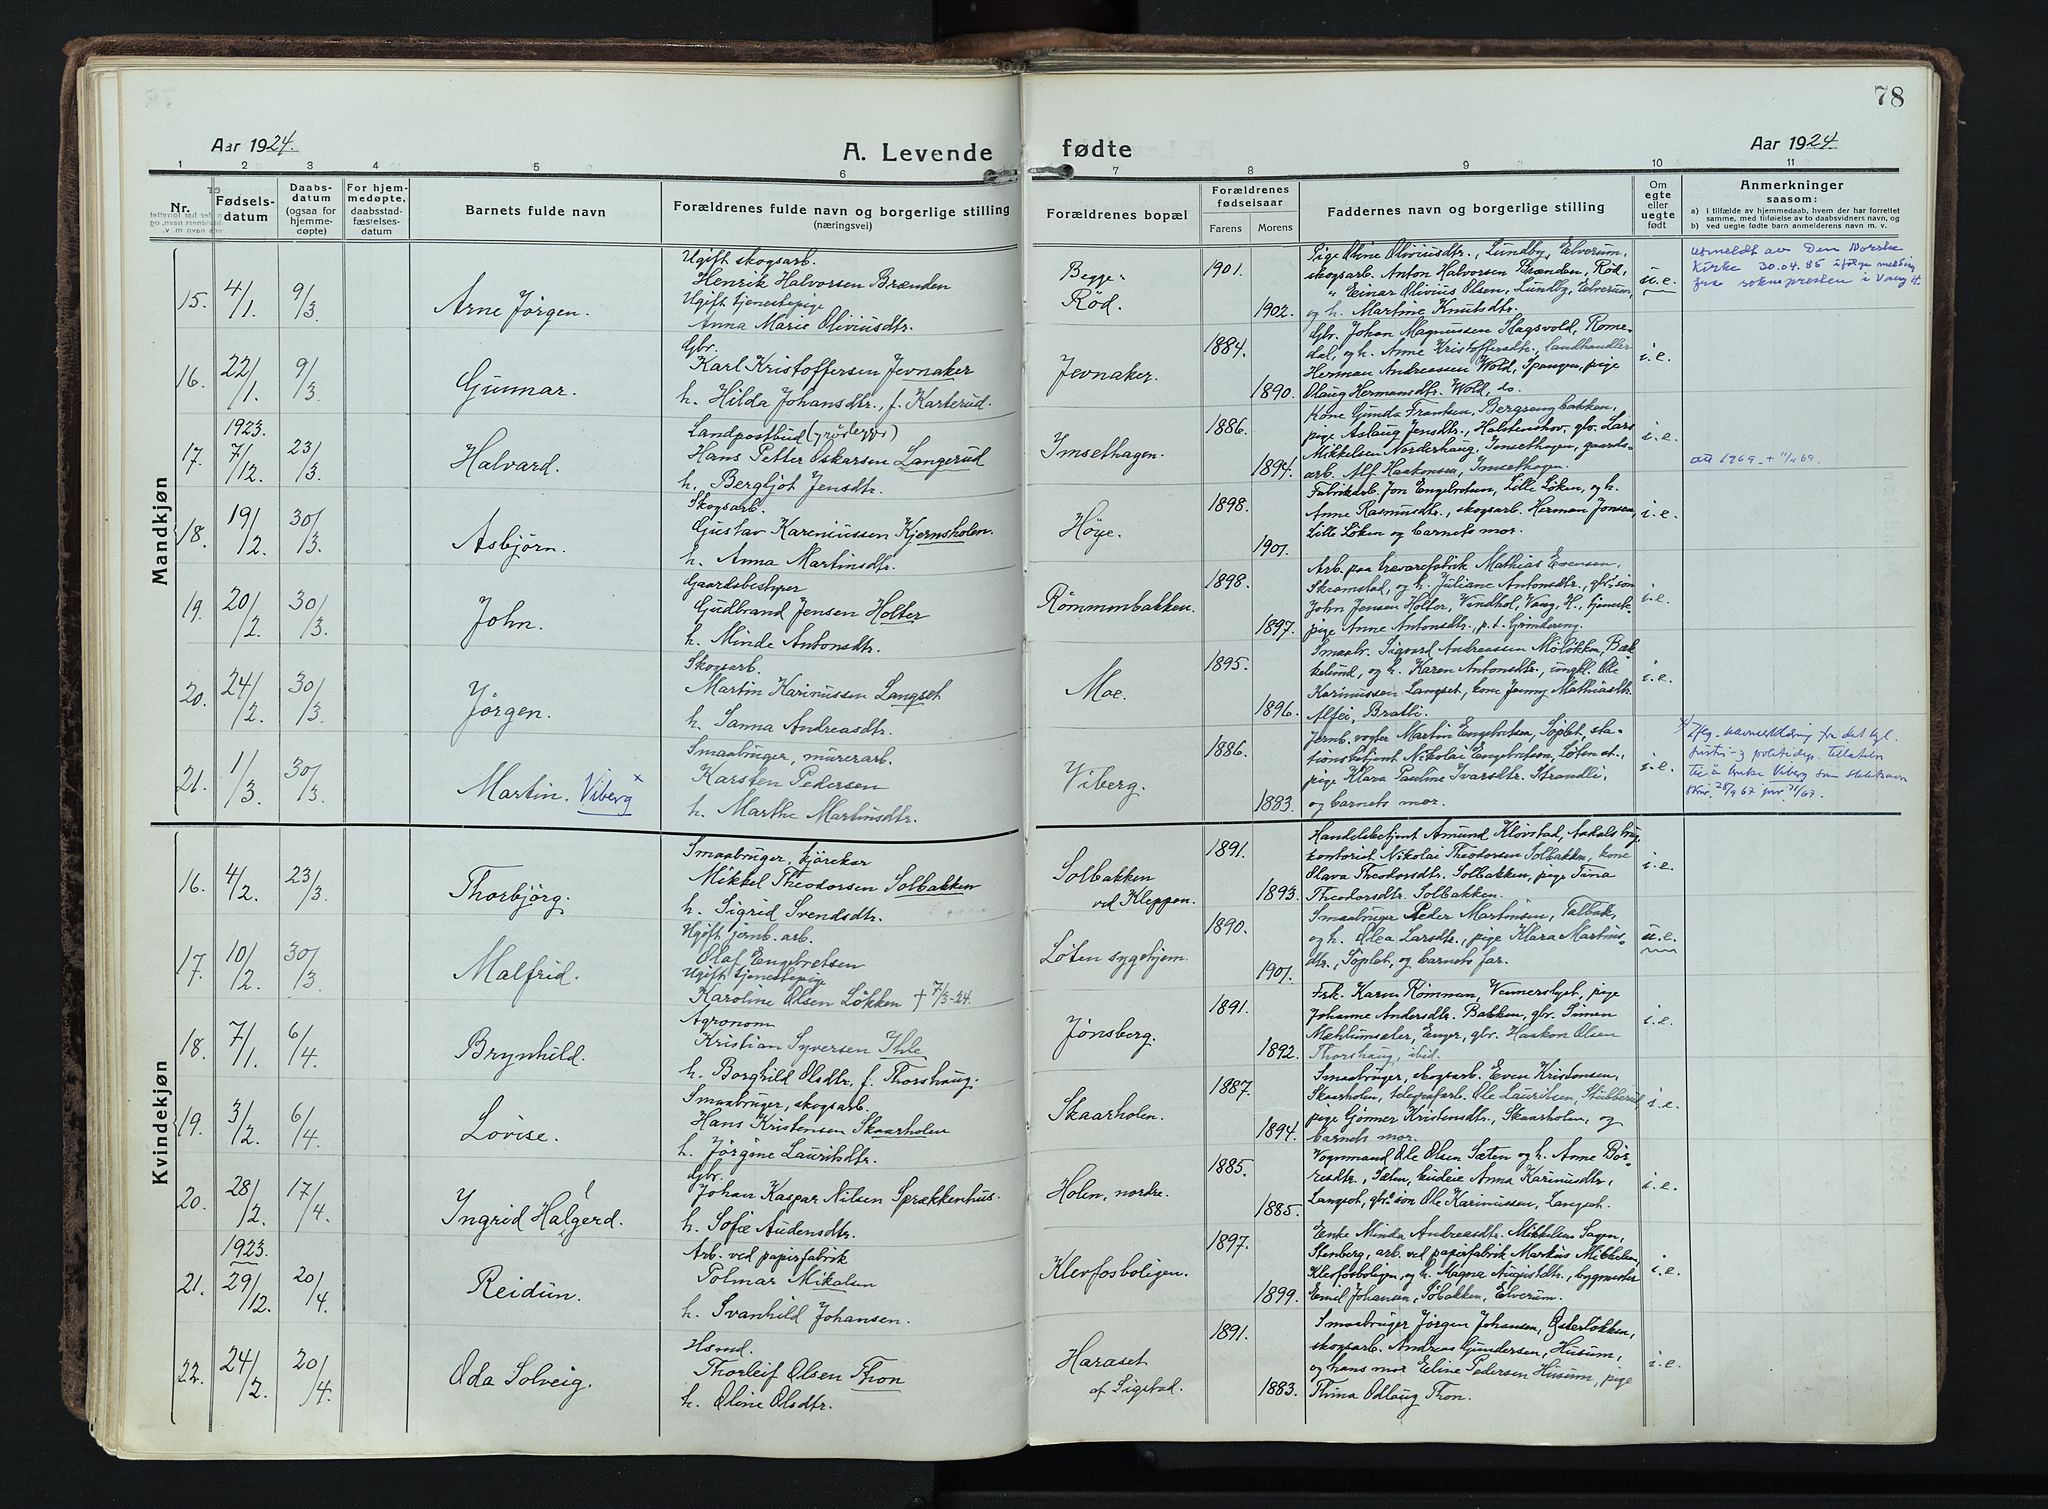 78
Aar 1924.
A. Levende fødte
Aar 1924.
1 2 3 4 5 6 7 8 9 10 11
Nr.
Fødselsdatum
Daabsdatum (ogsaa for hjemmedøpte)
For hjemmedøpte, daabsstadfæstelsesdatum
Barnets fulde navn
Forældrenes fulde navn og borgerlige stilling (næringsvei)
Forældrenes bopæl
Forældrenes fødselsaar
Farens Morens
Faddernes navn og borgerlige stilling
Om egte eller uegte født
Anmerkninger saasom:
a) i tilfælde av hjemmedaab, hvem der har forrettet samme, med tilføielse av to daabsvidners navn, og
b) ved uegte fødte barn anmelderens navn m. v.
Mandkjøn
15. 4/1. 9/3 Arne Jørgen.
Ugift skogsarb.
Henrik Halvorsen Brænden
Ugift tjenestepige
Anna Marie Oliviusdtr.
Begge:
Rød.
1901.
1902.
Pige Oline Oliviusdtr., Lundby, Elverum,
skogsarb. Anton Halvorsen Brænden, Rød,
" Einar Olivius Olsen, Lundby, Elverum,
og h. Martine Knutsdtr.
u.e.
Utmeldt av Den Norske
Kirke 30.04.85 ifølge melding
fra soknepresten i Vang H.
16. 22/1. 9/3 Gunnar.
Gbr.
Karl Kristoffersen Jevnaker
h. Hilda Johansdtr., f. Karterud.
Jevnaker.
1884.
1890.
Gbr. Johan Magnussen Hagsvold, Rome-
dal, og h. Anne Kristoffersdtr., landhandler
Herman Andreassen Wold, Spangen, pige
Olaug Hermansdtr. Wold, do.
i.e.
17. 1923. 7/12. 23/3 Halvard.
Landpostbud
Hans Petter Oskarsen Langerud
h. Bergljot Jensdtr.
Imsethagen.
1886.
1894.
Kone Gunda Frantsen, Bergsengbakken,
pige Aslaug Jensdtr., Halstenshov, gbr. Lars
Mikkelsen Norderhaug, Imsethagen, gaards-
arb. Alf Haakonsen, Imsethagen.
i.e.
18. 19/2. 30/3 Asbjørn.
Skogsarb.
Gustav Kareniussen Kjernsholen.
h. Anna Martinsdtr.
Høye.
1898.
1901.
Fabrikarb. Jon Engebretsen, Lille Løken, og h.
Anne Rasmusdtr., skogsarb. Herman Jonsen,
Lille Løken og barnets mor.
i.e.
19. 20/2. 30/3. John.
Gaardsbestyrer
Gudbrand Jensen Holter
h. Minda Antonsdtr.
Rømmenbakken.
1898.
1897.
Arb. paa trevarefabrik Mathias Evensen,
Skramstad, og h. Juliane Antonsdtr., gbr.søn
John Jensen Holter, Vindhol, Vang, H., tjeneste-
pige Anne Antonsdtr., p.t. Grindereng.
i.e.
20. 24/2. 30/3 Jørgen.
Skogsarb.
Martin Karinussen Langset
h. Sanna Andreasdtr.
Moe.
1895.
1896.
Smaabr. Sigvard Andreassen Moløkken, Bæk-
kelund, og h. Karen Antonsdtr., ungkl. Ole
Karinussen Langset, kone Jenny Mathiasdtr.
Alfei, Bratli.
i.e.
21. 1/3. 30/3. Martin. Viberg x
Smaabruger, murerarb.
Karsten Pedersen
h. Marthe Martinsdtr.
Viberg.
1886.
1883.
Jernb.vogter Martin Engebretsen, Søplet, sta-
tionsbetjent Nikolai Engebretsen, Løten st.,
pige Klara Pauline Ivarsdtr. Strandli,
og barnets mor.
i.e.
x) Ifølg. navnemelding fra det kgl.
justis- og politidep. tillatelse
til å bruke Viberg som slektsnavn
Kvindekjøn
16. 4/2. 23/3. Thorbjørg.
Smaabruger, kjørekar
Mikkel Theodorsen Solbakken
h. Sigrid Svendsdtr.
Solbakken
ved Kleppen.
1891.
1893.
Handelsbetjent Amund Kløvstad, Aakals brug,
kontorist Nikolai Theodorsen Solbakken, kone
Olava Theodorsdtr. Solbakken, pige Tina
Theodorsdtr. Solbakken.
i.e.
17. 10/2. 30/3 Malfrid.
Ugift jernb.arb.
Olaf Engebretsen
Ugift tjenestepige
Karoline Olsen Løkken + 7/3-24.
Løten sygehjem.
1890.
1901.
Smaabruger Peder Martinsen, Talbak,
og h. Olea Larsdtr., pige Klara Martins-
dtr., Søplet, og barnets far.
u.e.
18. 7/1. 6/4. Brynhild.
Agronom
Kristian Syversen Ihle
h. Borghild Olsdtr. f. Thorshaug.
Jønsberg.
1891.
1892.
Frk. Karen Rømmen, Vennerslyst, pige
Johanne Andersdtr. Bakken, gbr. Simen
Mæhlumsæter, Enger, gbr. Haakon Olsen
Thorshaug, ibid.
i.e.
19. 3/2. 6/4. Lovise.
Smaabruger, skogsarb.
Hans Kristensen Skaarholen
h. Jørgine Lauritsdtr.
Skaarholen.
1887.
1894.
Smaabruger, skogsarb. Even Kristensen,
Skaarholen, telegrafarb. Ole Lauritsen, Stubberud,
pige Gjønner Kristensdtr., Skaarholen, og
barnets mor.
i.e.
20. 28/2. 17/4. Ingrid Halgerd.
Gbr.
Johan Kaspar Nilsen Sprækkenhus.
h. Sofie Audensdtr.
Holen, nordre.
1885.
1885.
Vognmand Ole Olsen Sæten og h. Anne Bør-
resdtr., Sæten, budeie Anna Karinusdtr.,
Langset, gbr.søn Ole Karinussen, Langset.
i.e.
21. 1923. 29/12. 20/4. Reidun.
Arb. ved papirfabrik
Polmar Mikalsen
h. Svanhild Johansen.
Klevfosboligen.
1897.
1899.
Enke Minda Andreasdtr. Mikkelsen Sagen,
Stenberg, arb. ved papirfabrik Markus Mikkelsen,
Klevfosboligen, og h. Magna Augustdtr., bygmester
Emil Johansen, Solbakken, Elverum.
i.e.
22. 24/2. 20/4. Oda Solveig.
Hsmd.
Thorleif Olsen Thon
h. Oline Olsdtr.
Haraset
af Sigstad.
1891.
1883.
Smaabruger Jørgen Johansen, Østerløkken,
skogsarb. Andreas Gundersen, Husum,
og hans mor Eline Pedersen Husum, pige
Thina Odlaug Tron.
i.e.